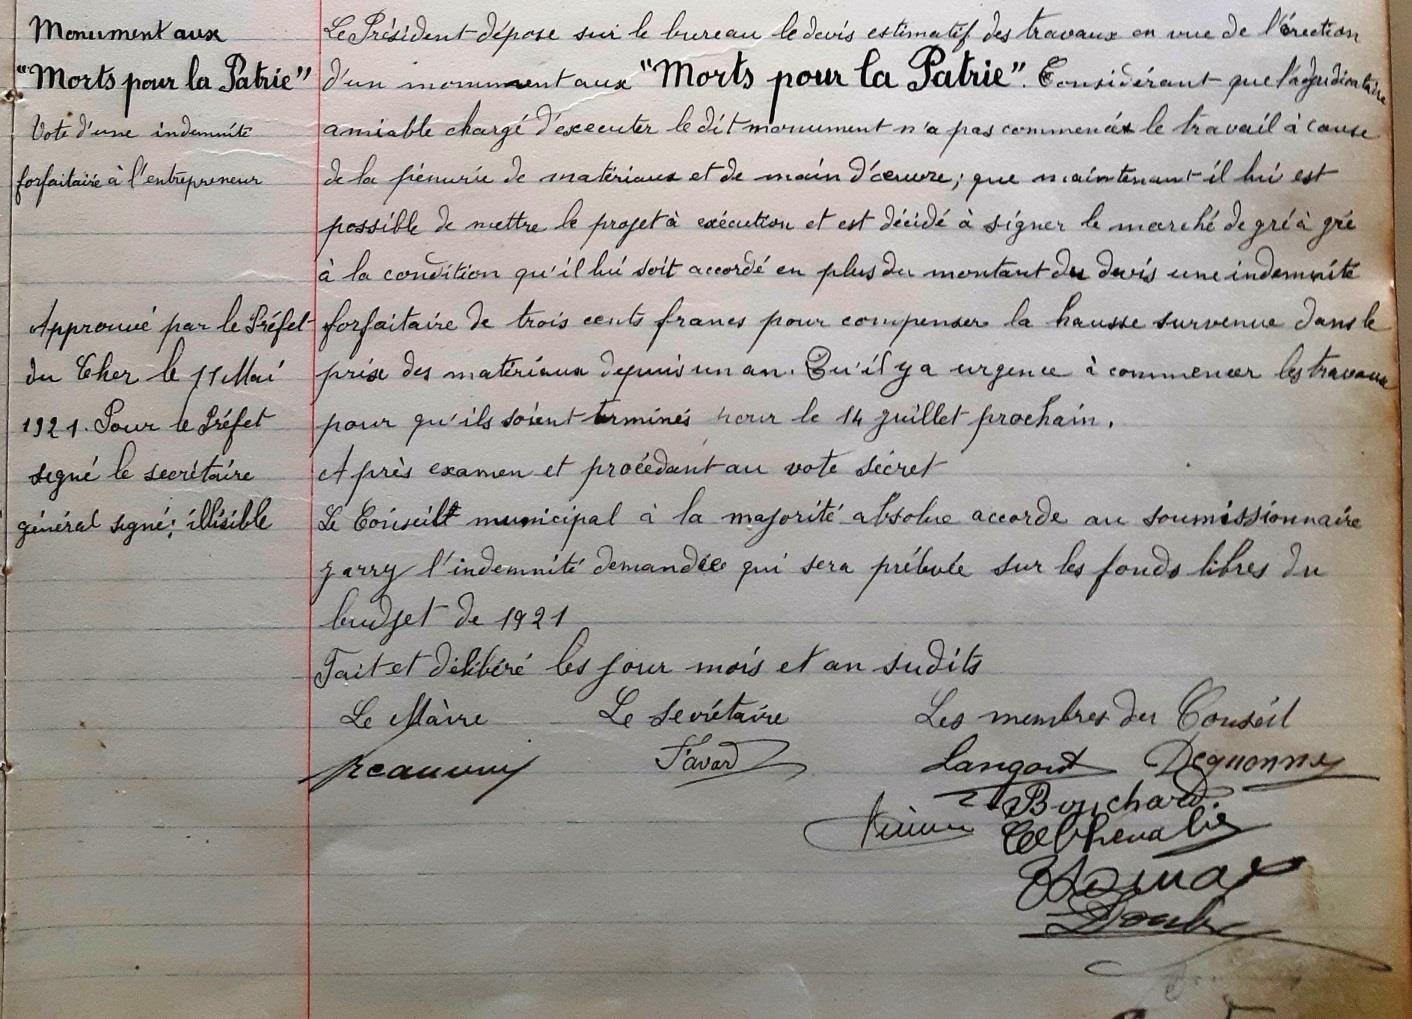 Monument aux
"Morts pour la Patrie"
Vote d'une indemnité
forfaitaire à l'entrepreneur
Approuvé par le Préfet
du Cher le 11 Mai
1921. Pour le Préfet
signé le secrétaire
général signé: illisible
Le Président dépose sur le bureau le devis estimatif des travaux en vue de l'érection
d'un monument aux "Morts pour la Patrie". Considérant que l'adjudicataire
amiable chargé d'executer le dit monument n'a pas commencé le travail à cause
de la pénurie de matériaux et de main d'œuvre; que maintenant il lui est
possible de mettre le projet à exécution et est décidé à signer le marché de gré à gré
à la condition qu'il lui soit accordé en plus du montant du devis une indemnité
forfaitaire de trois cents francs pour compenser la hausse survenue dans le
prix des matériaux depuis un an. Qu'il y a urgence à commencer les travaux
pour qu'ils soient terminés pour le 14 juillet prochain.
Après examen et procédant au vote secret
Le Conseil municipal à la majorité absolue accorde au soumissionnaire
Jarry l'indemnité demandée qui sera prélevée sur les fonds libres du
budget de 1921
Fait et délibéré les jour mois et an sudits
Le Maire Le secrétaire Les membres du Conseil
Favard
Bouchard
Chevalier